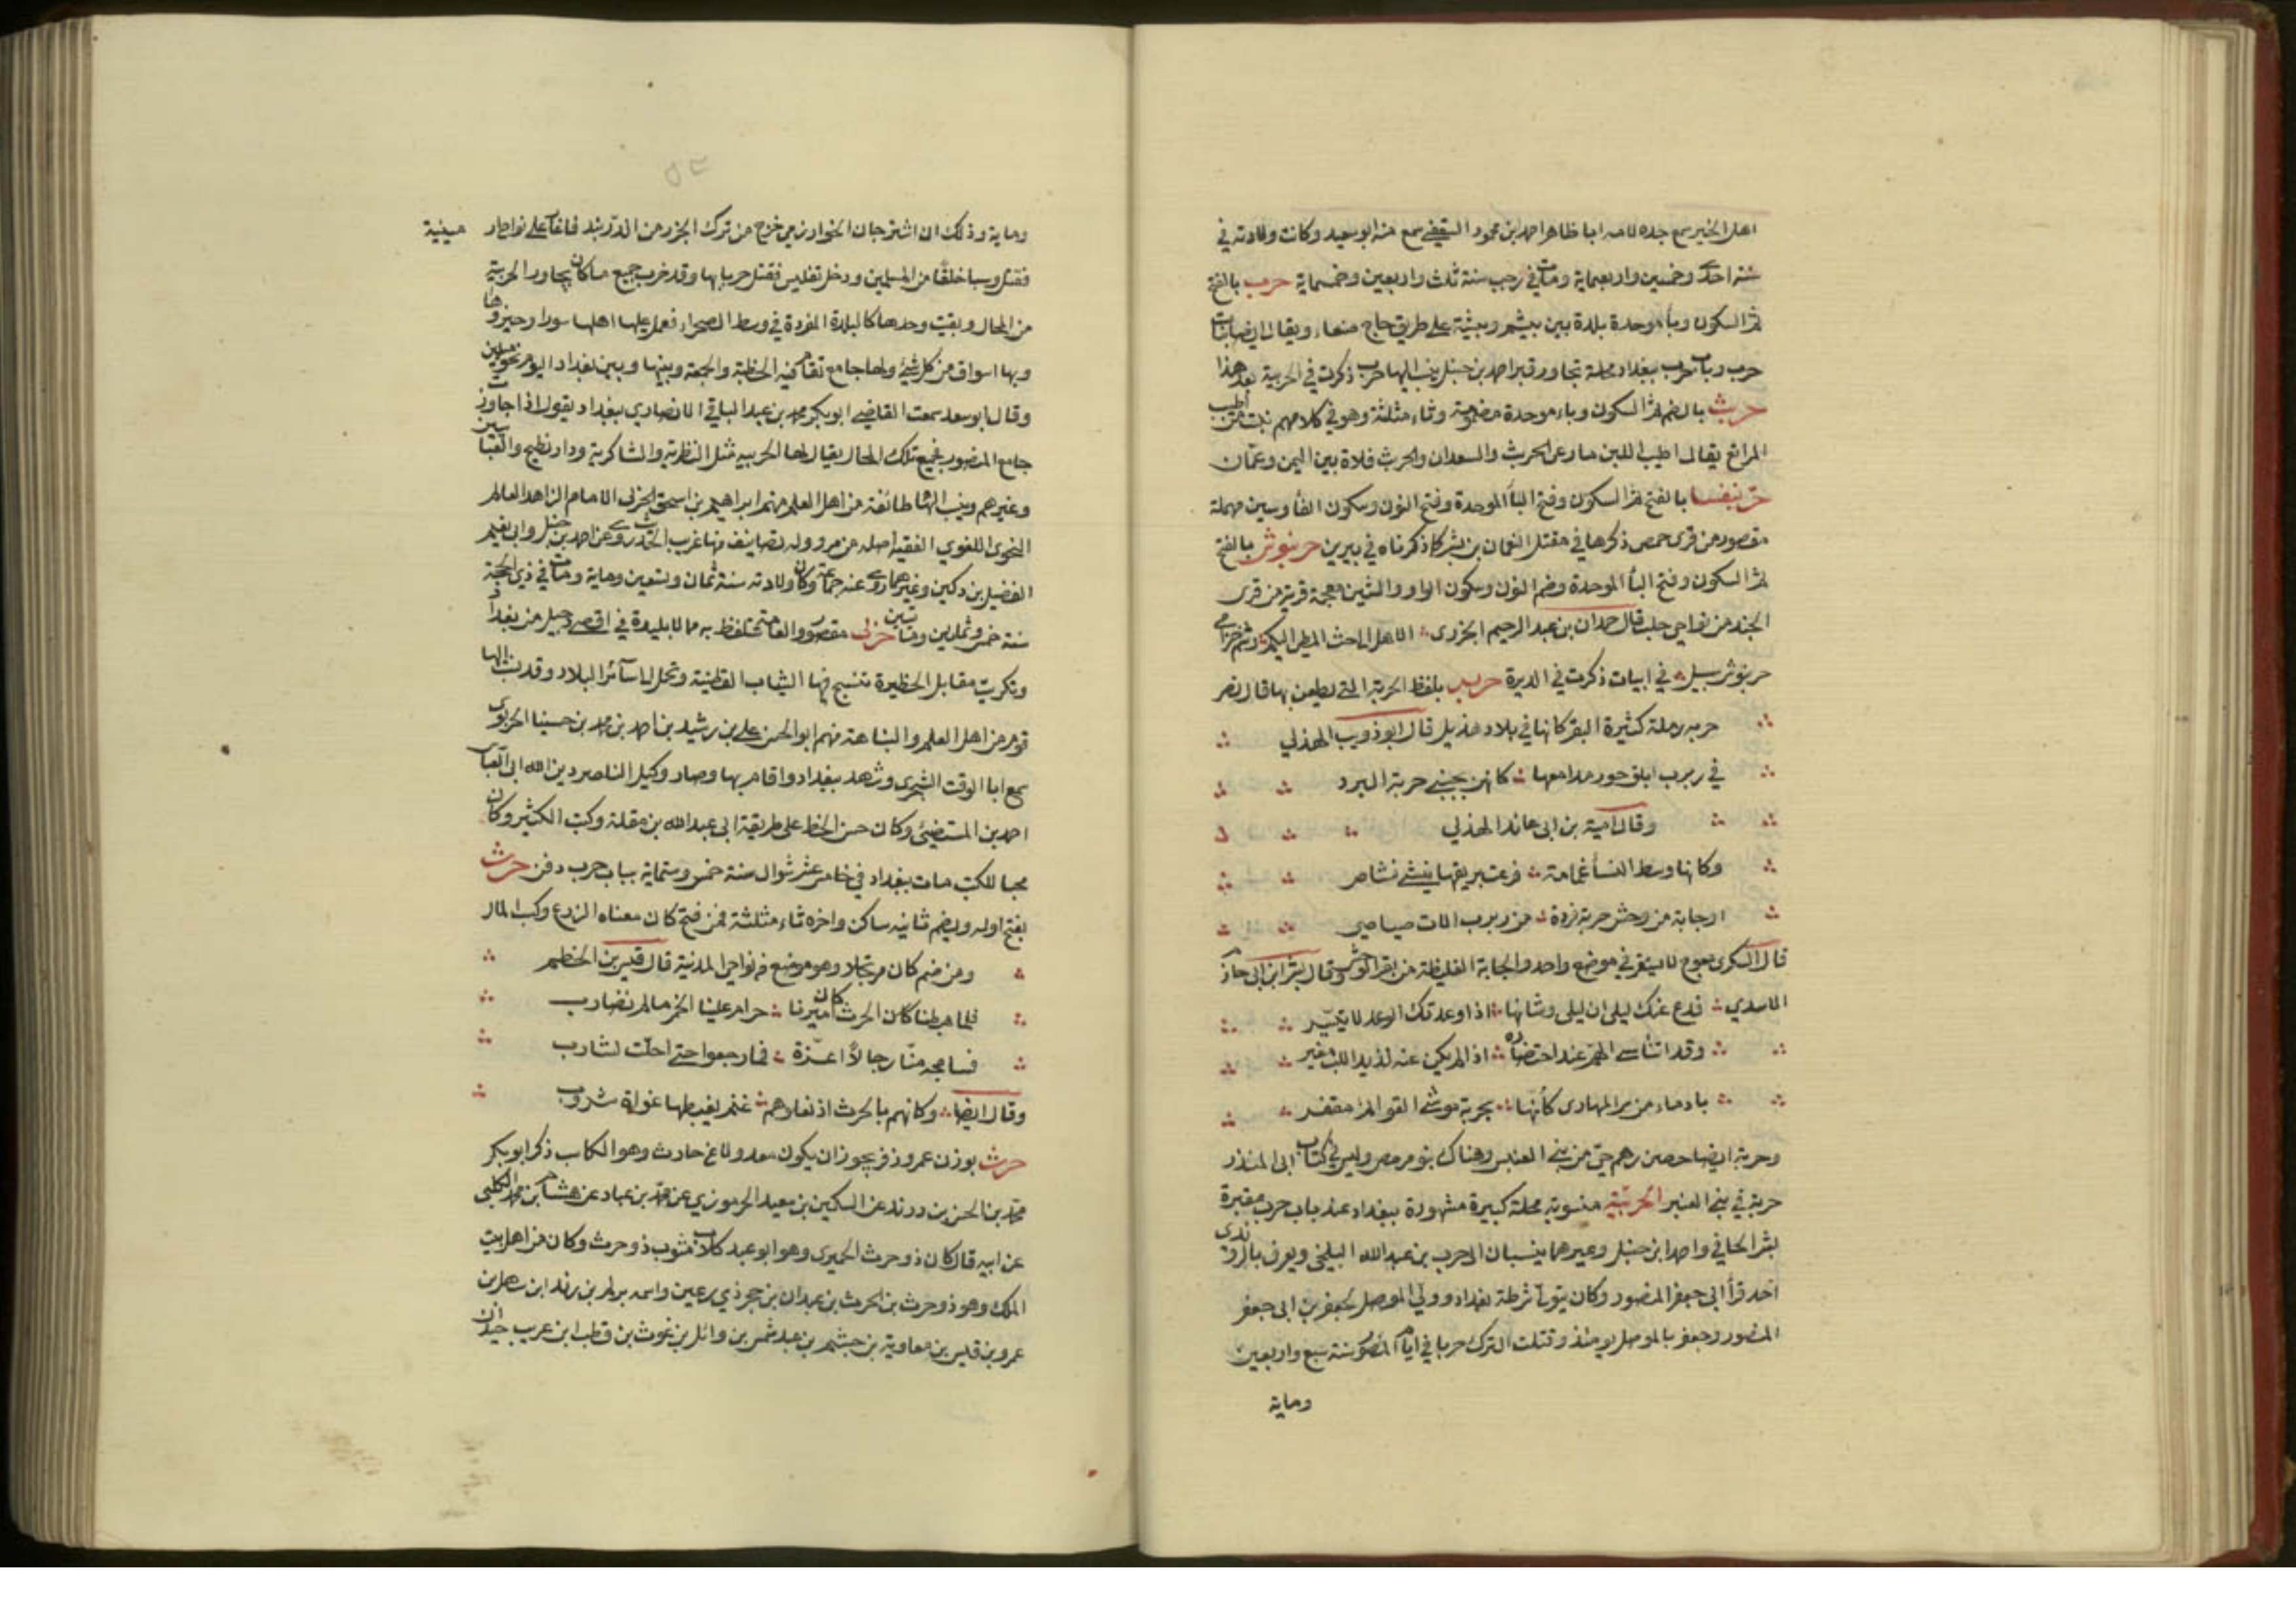 اهل الخير سمع جده لامه ابا طاهر احمد بن محمود الثقفي سمع منه ابو سعيد وكانت ولادته في
سنة احدى وخمسين واربعماية ومات في رجب سنة ثلث واربعين وخمسماية حرب بالفتح
ثم السكون وباء موحدة بلدة بين يبنبم وبيشة على طريق حاج صنعاء ويقال ايضا بنات
حرب وباب حرب ببغداد محلة تجاور قبر احمد بن حنبل ينسب اليها حربي ذكرت في الحربية بعد هذا
حربث بالضم ثم السكون وباء موحدة مضمومة وثاء مثلثة وهو في كلامهم نبت من اطيب
المراتع يقال اطيب اللبن ما رعى الحربث والسعدان والحربث فلاة بين اليمن وعمان
حربنفسا بالفتح ثم السكون وفتح البأ الموحدة وفتح النون وسكون الفأ وسين مهملة
مقصور من قرى حمص ذكرها في مقتل النعمان بن بشير كما ذكرناه في بيرين حربنوش بالفتح
ثم السكون وفتح البأ الموحدة وضم النون وسكون الواو والشين معجمة قرية من قرى
الجند من نواحي حلب قال حمدان بن عبد الرحيم الجزرى الا هل الى حث المطى اليكم وشم خزامى
حربنوش سبيل في ابيات ذكرت في الديرة حربه بلفظ الحربة التي يطعن بها قال نصر
حربه رملة كثيرة البقر كانها في بلاد هذيل قال ابو ذويب الهذلي
في ربرب ابلق حور مدامعها كانهن بجنبي حربة البرد
وقال امية بن ابى عائذ الهذلي
وكانها وسط النسأ غمامة فرعت بريقها ينشي نشاص
او جابة من وحش حربة فردة من ربرب الات صياصي
قال السكرى مرج لا يستقر في موضع واحد والجابة الغليظة من بقر الوحش وقال بشر ابن ابى خازم
الاسدي فدع عنك ليلى ان ليلى وشانها اذا وعدتك الوعد لا يتيسر
وقد اتناسى الهم عند احتضاره اذا لم يكن عنه لذي اللب معبر
بادماء من سر المهارى كأنها بحربة موشي القوائم مقفر
وحربة ايضا حصن رهم حي من بني العنبر وهناك بنو مر مصر وليس في كتاب ابى المنذر
حربة في بني العنبر الحربية منسوبة محلة كبيرة مشهورة ببغداد عند باب حرب مقبرة
بشر الحافي واحمد ابن حنبل وغيرهما ينسبان الى حرب بن عبد الله البلخى ويعرف بالروندى
احد قوأ ابى جعفر المنصور وكان يتولى شرطة بغداد وولى الموصل لجعفر بن ابى جعفر
المنصور وجعفر بالموصل يومئذ وقتلت الترك حربا في ايام المنصور سنة سبع واربعين
وماية
وماية وذلك ان اشترخان الخوارزمي خرج من ترك الخزر من الدربند فاغار على نواحى ارمينية
فقتل وسبا خلقا من المسلمين ودخل تفليس فقتل حربا بها وقد خرب جميع ما كان يجاور الحربية
من المحال وبقيت وحدها كالبلدة المفردة في وسط الصحراء فعمل عليها اهلها سورا وحيروها
وبها اسواق من كل شئ ولها جامع تقام فيه الخطبة والجمعة وبينها وبين بغداد اليوم نحو ميلين
وقال ابو سعد سمعت القاضي ابو بكر محمد بن عبد الباقي الانصاري ببغداد يقول اذا جاوزت
جامع المنصور فجميع تلك المحال يقال لها الحربيه مثل النظرية والشاكرية ودار بطيخ والعباسيين
وغيرهم وينسب اليها طائفة من اهل العلم منهم ابراهيم بن اسحق الحربى الامام الزاهد العالم
النحوى اللغوي الفقيه اصله من مرو وله تصانيف منها غريب الحديث روى عن احمد بن حنبل وابى نعيم
الفضيل بن دكين وغيرهما روى عنه جماعة وكان ولادته سنة ثمان وتسعين وماية ومات في ذي الحجة
سنة خمس وثمانين وماتين حربى مقصور والعامة تتلفظ به ممالا بليدة في اقصى دجيل من بغداد
وتكريت مقابل الحظيرة تنسج فيها الثياب القطنية وتحمل الى سائر البلاد وقد نسب اليها
قوم من اهل العلم والنباهة منهم ابو الحسن على بن رشيد بن احمد بن محمد بن حسينا الحربوى
سمع ابا الوقت السجزى وشهد ببغداد واقام بها وصار وكيل الناصر دين الله ابى العباس
احمد بن المستضئ وكان حسن الخط على طريقة ابى عبد الله بن مقلة وكتب الكثير وكان
محبا للكتب مات ببغداد في خامس عشر شوال سنة خمس وستماية بباب حرب دفن حرث
بفتح اوله ويضم ثانيه ساكن واخره ثاء مثلثة فمن فتح كان معناه الزرع وكسب المال
ومن ضم كان مرتجلا وهو موضع في نواحى المدنية قال قيس بن الخطيم
فلما هبطنا كان الحرث كان اميرنا حرام علينا الخمر ما لم نضارب
فسامحه منا رجالا اعزة فما رجعوا حتى احلت لشارب
وقال ايضا وكانهم بالحرث اذ نعلاهم غنم يغبطها غواة شروب
حرث بوزن عمر وزفر يجوز ان يكون معدولا عن حارث وهو الكاسب ذكر ابو بكر
محمد بن الحسن بن دريد عن السكين بن سعيد الجرموزي عن محمد بن عباد عن هشام بن محمد الكلبى
عن ابيه قال كان ذو حرث الحميرى وهو ابو عبد كلال مثوب ذو حرث وكان من اهل بيت
الملك وهو ذو حرث بن الحرث بن عيدان بن حجر ذي رعين واسمه يريم بن زيد ابن سهل بن
عمرو بن قيس بن معاوية بن جشم بن عبد شمس بن وائل بن غوث بن قطب ابن عريب حيدان